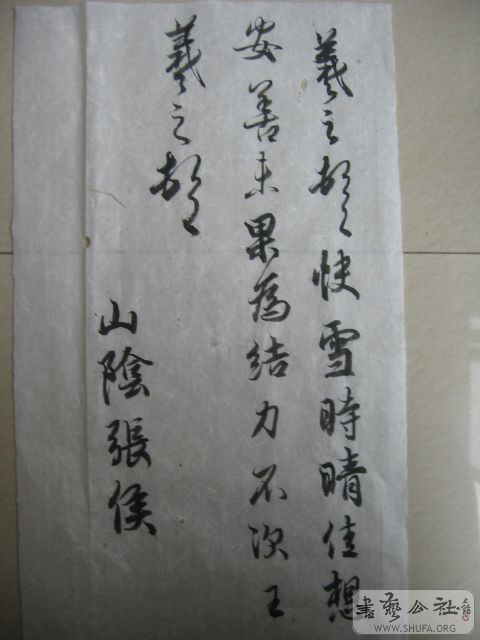 羲之頓首快雪時晴佳想
安善未果為結力不次王
羲之頓首
山陰張侯
書藝公社
WWW.SHUFA.ORG